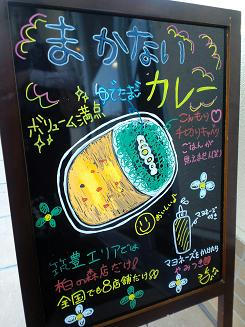 まかない
カレー
ボリューム満点
ゆでたまご
こんもり
千切りキャベツ
ごはんが
見えません(笑)
おいしいよ
マヨネーズ
付き
筑豊エリアでは
柏の森店だけ!
全国でも8店舗だけ!!
マヨネーズをかけたら
やみつき